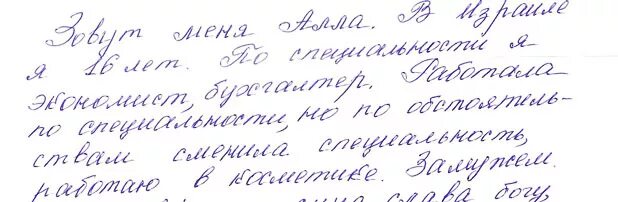 Зовут меня Алла. В Израиле
я 16 лет. По специальности я
экономист, бухгалтер. Работала
по специальности, но по обстоятель-
ствам сменила специальность,
работаю в косметике. Замужем.
слава богу